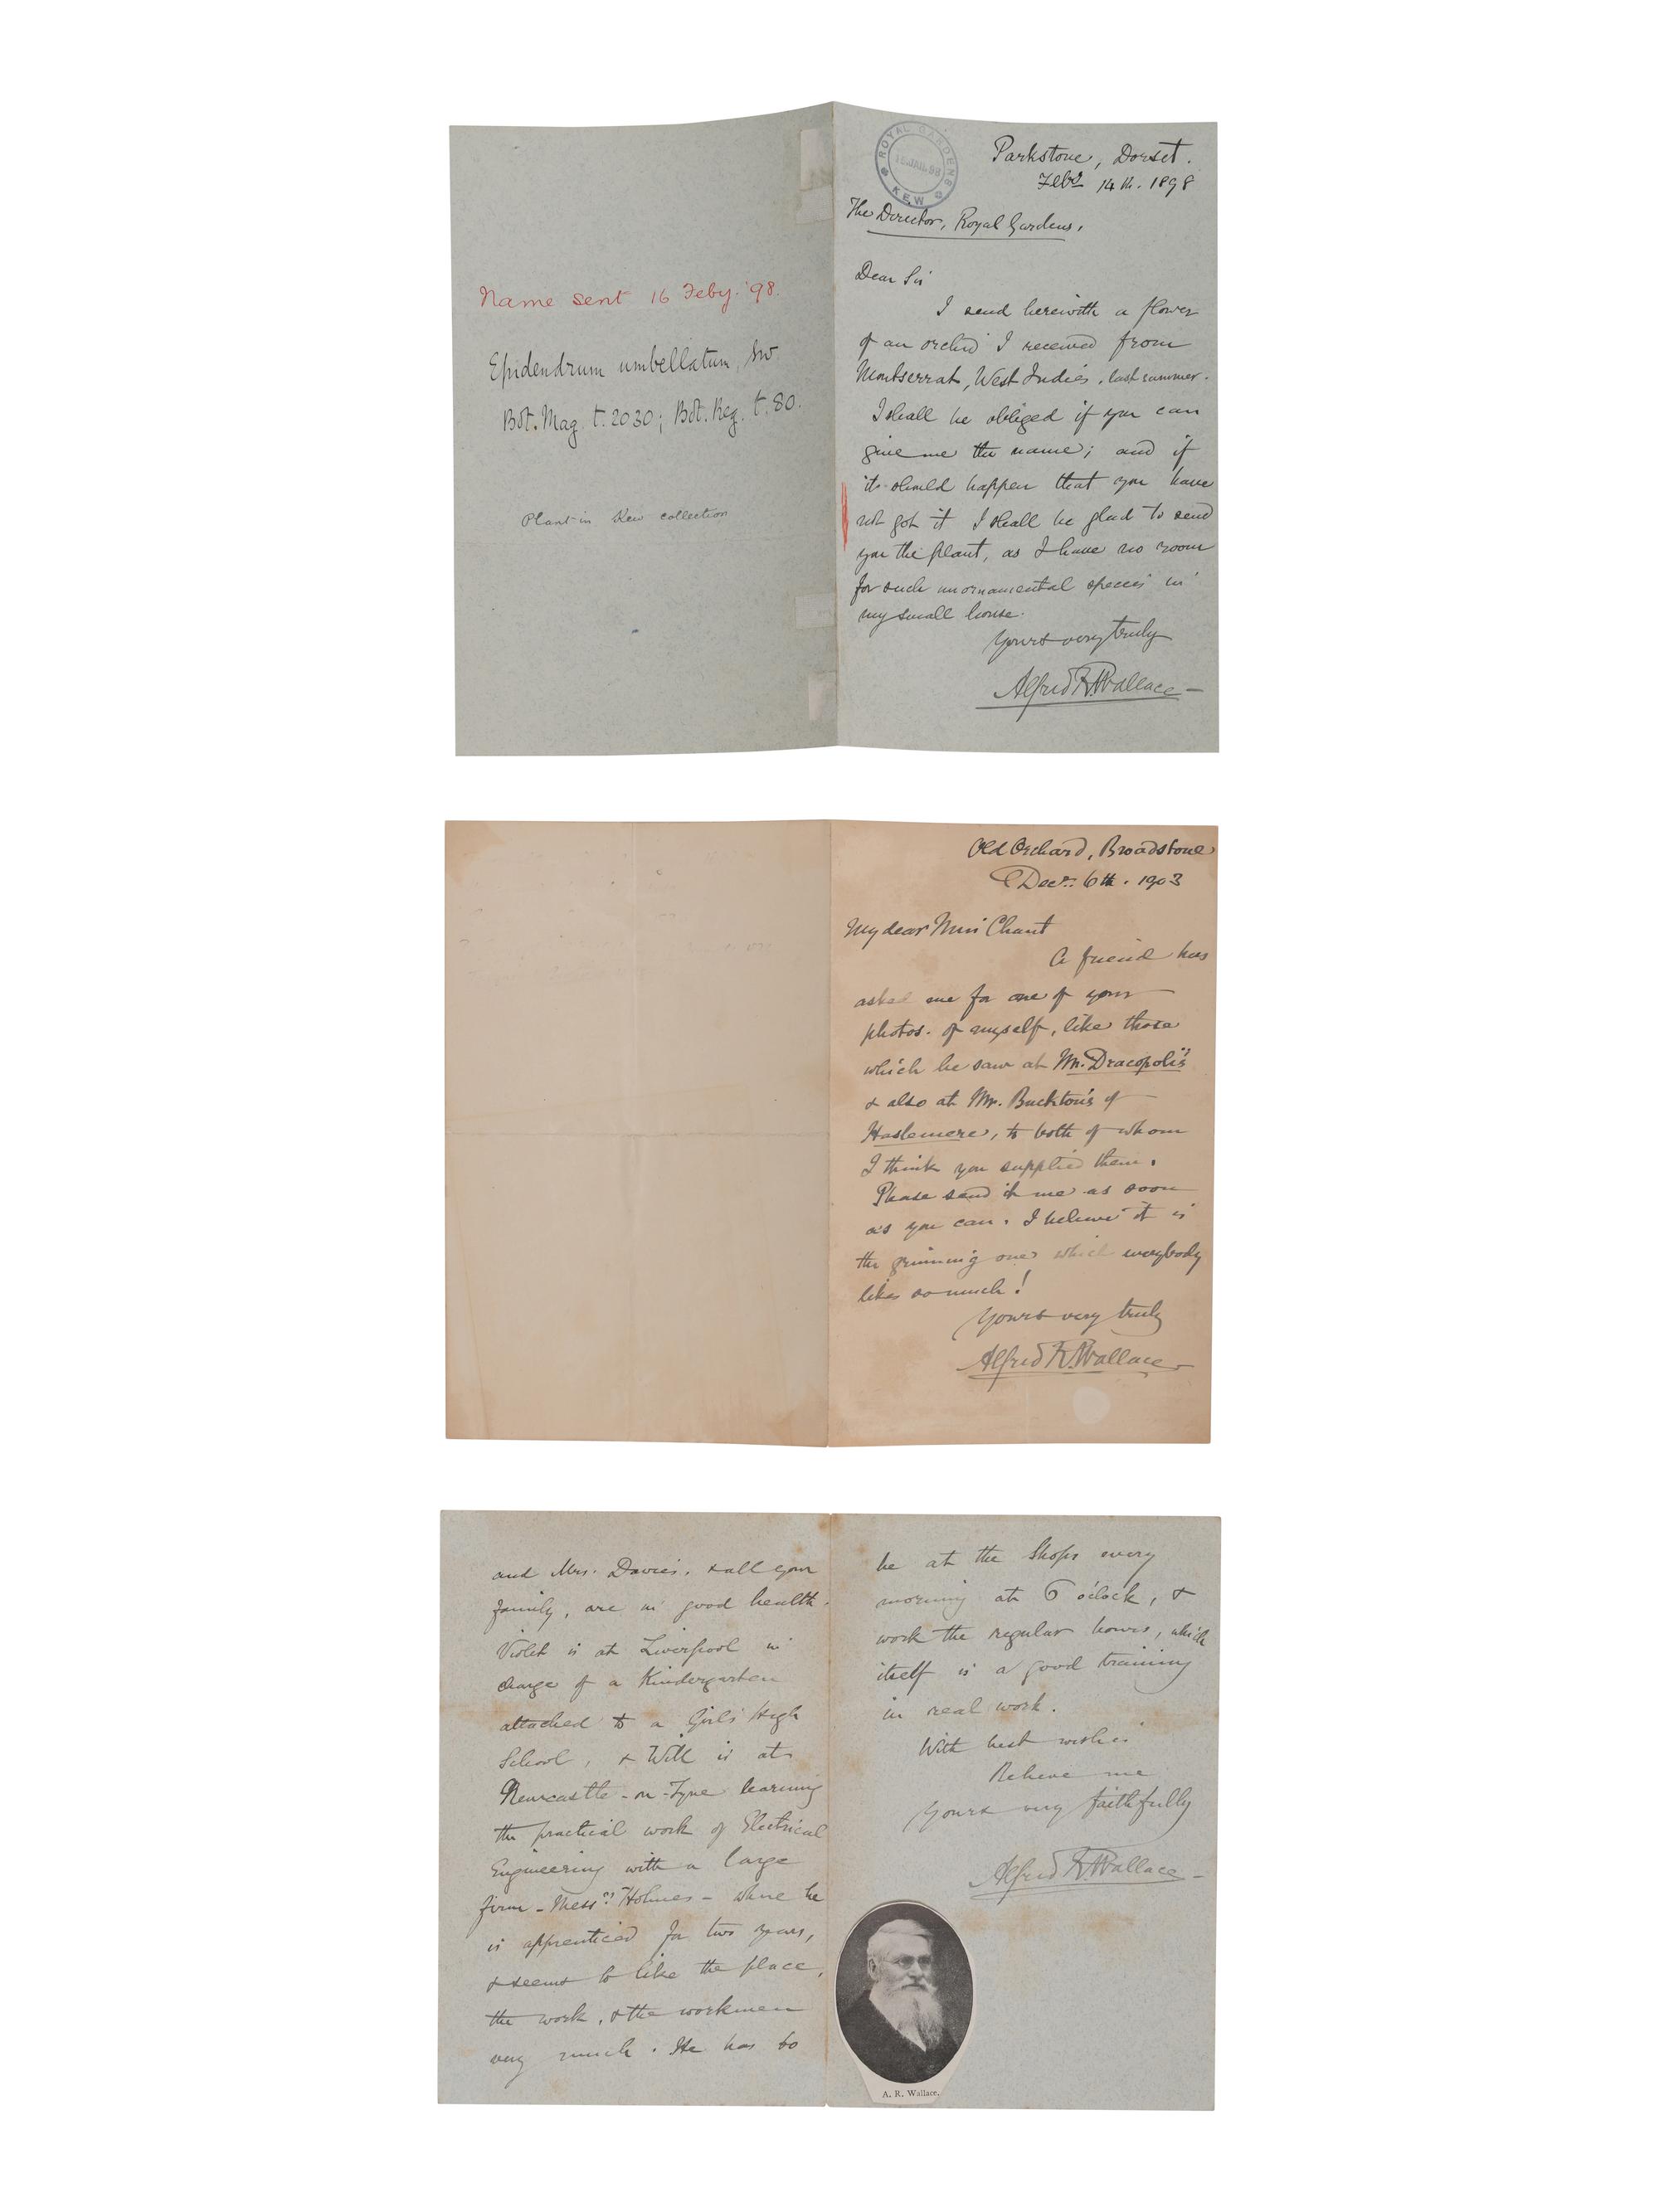 Name sent 16 Feby. '98.
Epidendrum umbellatum, Sw.
Bot. Mag. t. 2030; Bot. Reg. t. 80.
Plant in Kew collection
ROYAL GARDENS
KEW
Parkstone, Dorset.
Feby. 14th. 1898
The Director, Royal Gardens,
Dear Sir
I send herewith a flower
of an orchid I received from
Montserrat, West Indies, last summer.
I shall be obliged if you can
give me the name; and if
it should happen that you have
not got it I shall be glad to send
you the plant, as I have no room
for such unornamental species in
my small house.
Yours very truly
Alfred R. Wallace
Old Orchard, Broadstone
Decr. 6th. 1903
My dear Miss Chant
A friend has
asked me for one of your
photos. of myself, like those
which he saw at Mr. Dracopoli's
& also at Mr. Buckton's of
Haslemere, to both of whom
I think you supplied them.
Please send it me as soon
as you can. I believe it is
the grinning one which everybody
likes so much!
Yours very truly
Alfred R. Wallace
and Mrs. Davies, & all your
family, are in good health.
Violet is at Liverpool in
charge of a Kindergarten
attached to a Girls' High
School, & Will is at
Newcastle-on-Tyne learning
the practical work of Electrical
Engineering with a large
firm - Messrs. Holmes - where he
is apprenticed for two years,
& seems to like the place,
the work, & the workmen
very much. He has to
be at the Shops every
morning at 6 o'clock, &
work the regular hours, which
itself is a good training
in real work.
With best wishes
Believe me
Yours very faithfully
Alfred R. Wallace
A. R. Wallace.